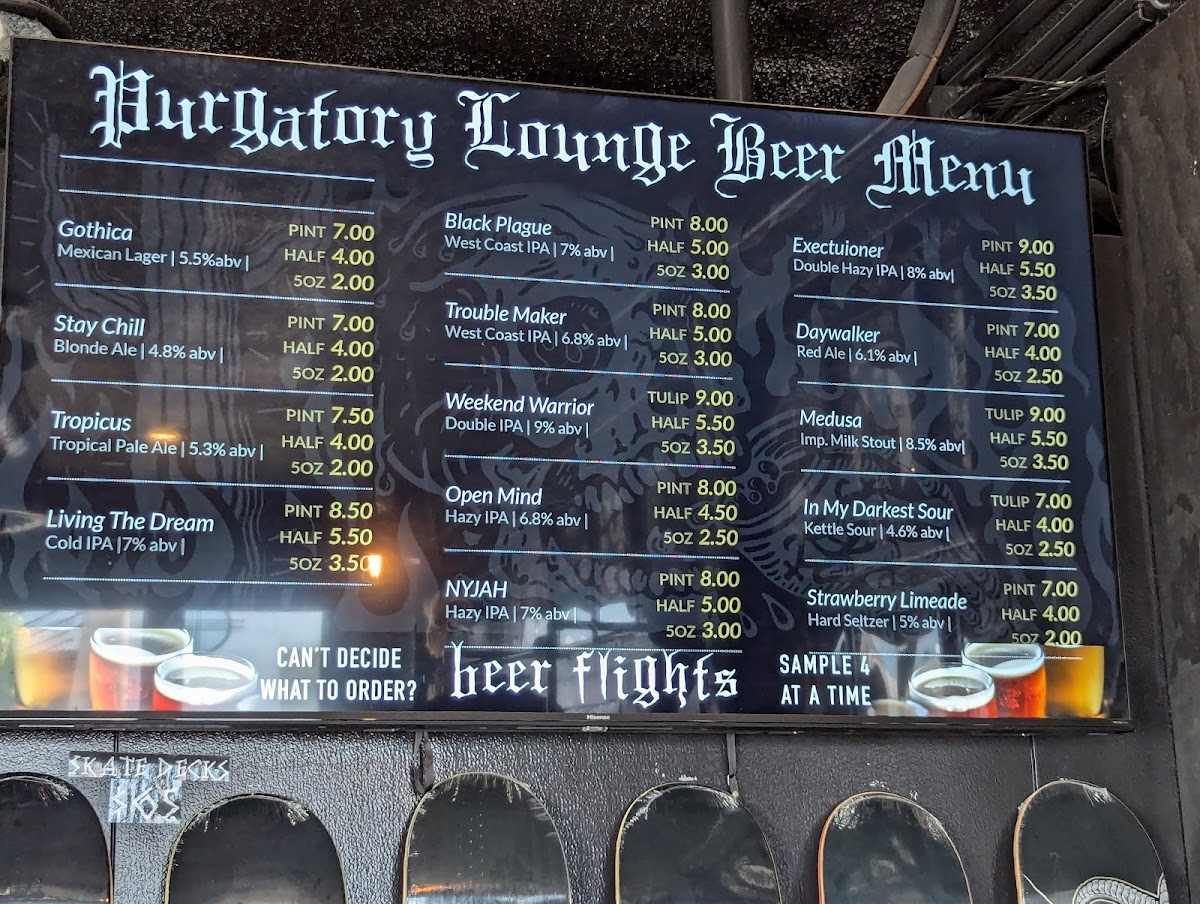 Purgatory Lounge Beer Menu
Gothica
Mexican Lager | 5.5%abv |
PINT 7.00
HALF 4.00
5OZ 2.00
Stay Chill
Blonde Ale | 4.8% abv |
PINT 7.00
HALF 4.00
5OZ 2.00
Tropicus
Tropical Pale Ale | 5.3% abv |
PINT 7.50
HALF 4.00
5OZ 2.00
Living The Dream
Cold IPA |7% abv |
PINT 8.50
HALF 5.50
5OZ 3.50
Black Plague
West Coast IPA | 7% abv |
PINT 8.00
HALF 5.00
5OZ 3.00
Trouble Maker
West Coast IPA | 6.8% abv |
PINT 8.00
HALF 5.00
5OZ 3.00
Weekend Warrior
Double IPA | 9% abv |
TULIP 9.00
HALF 5.50
5OZ 3.50
Open Mind
Hazy IPA | 6.8% abv |
PINT 8.00
HALF 4.50
5OZ 2.50
NYJAH
Hazy IPA | 7% abv |
PINT 8.00
HALF 5.00
5OZ 3.00
Exectuioner
Double Hazy IPA | 8% abv|
PINT 9.00
HALF 5.50
5OZ 3.50
Daywalker
Red Ale | 6.1% abv |
PINT 7.00
HALF 4.00
5OZ 2.50
Medusa
Imp. Milk Stout | 8.5% abv|
TULIP 9.00
HALF 5.50
5OZ 3.50
In My Darkest Sour
Kettle Sour | 4.6% abv |
TULIP 7.00
HALF 4.00
5OZ 2.50
Strawberry Limeade
Hard Seltzer | 5% abv |
PINT 7.00
HALF 4.00
5OZ 2.00
CAN'T DECIDE
WHAT TO ORDER?
beer flights
SAMPLE 4
AT A TIME
Hisense
SKATE DECKS